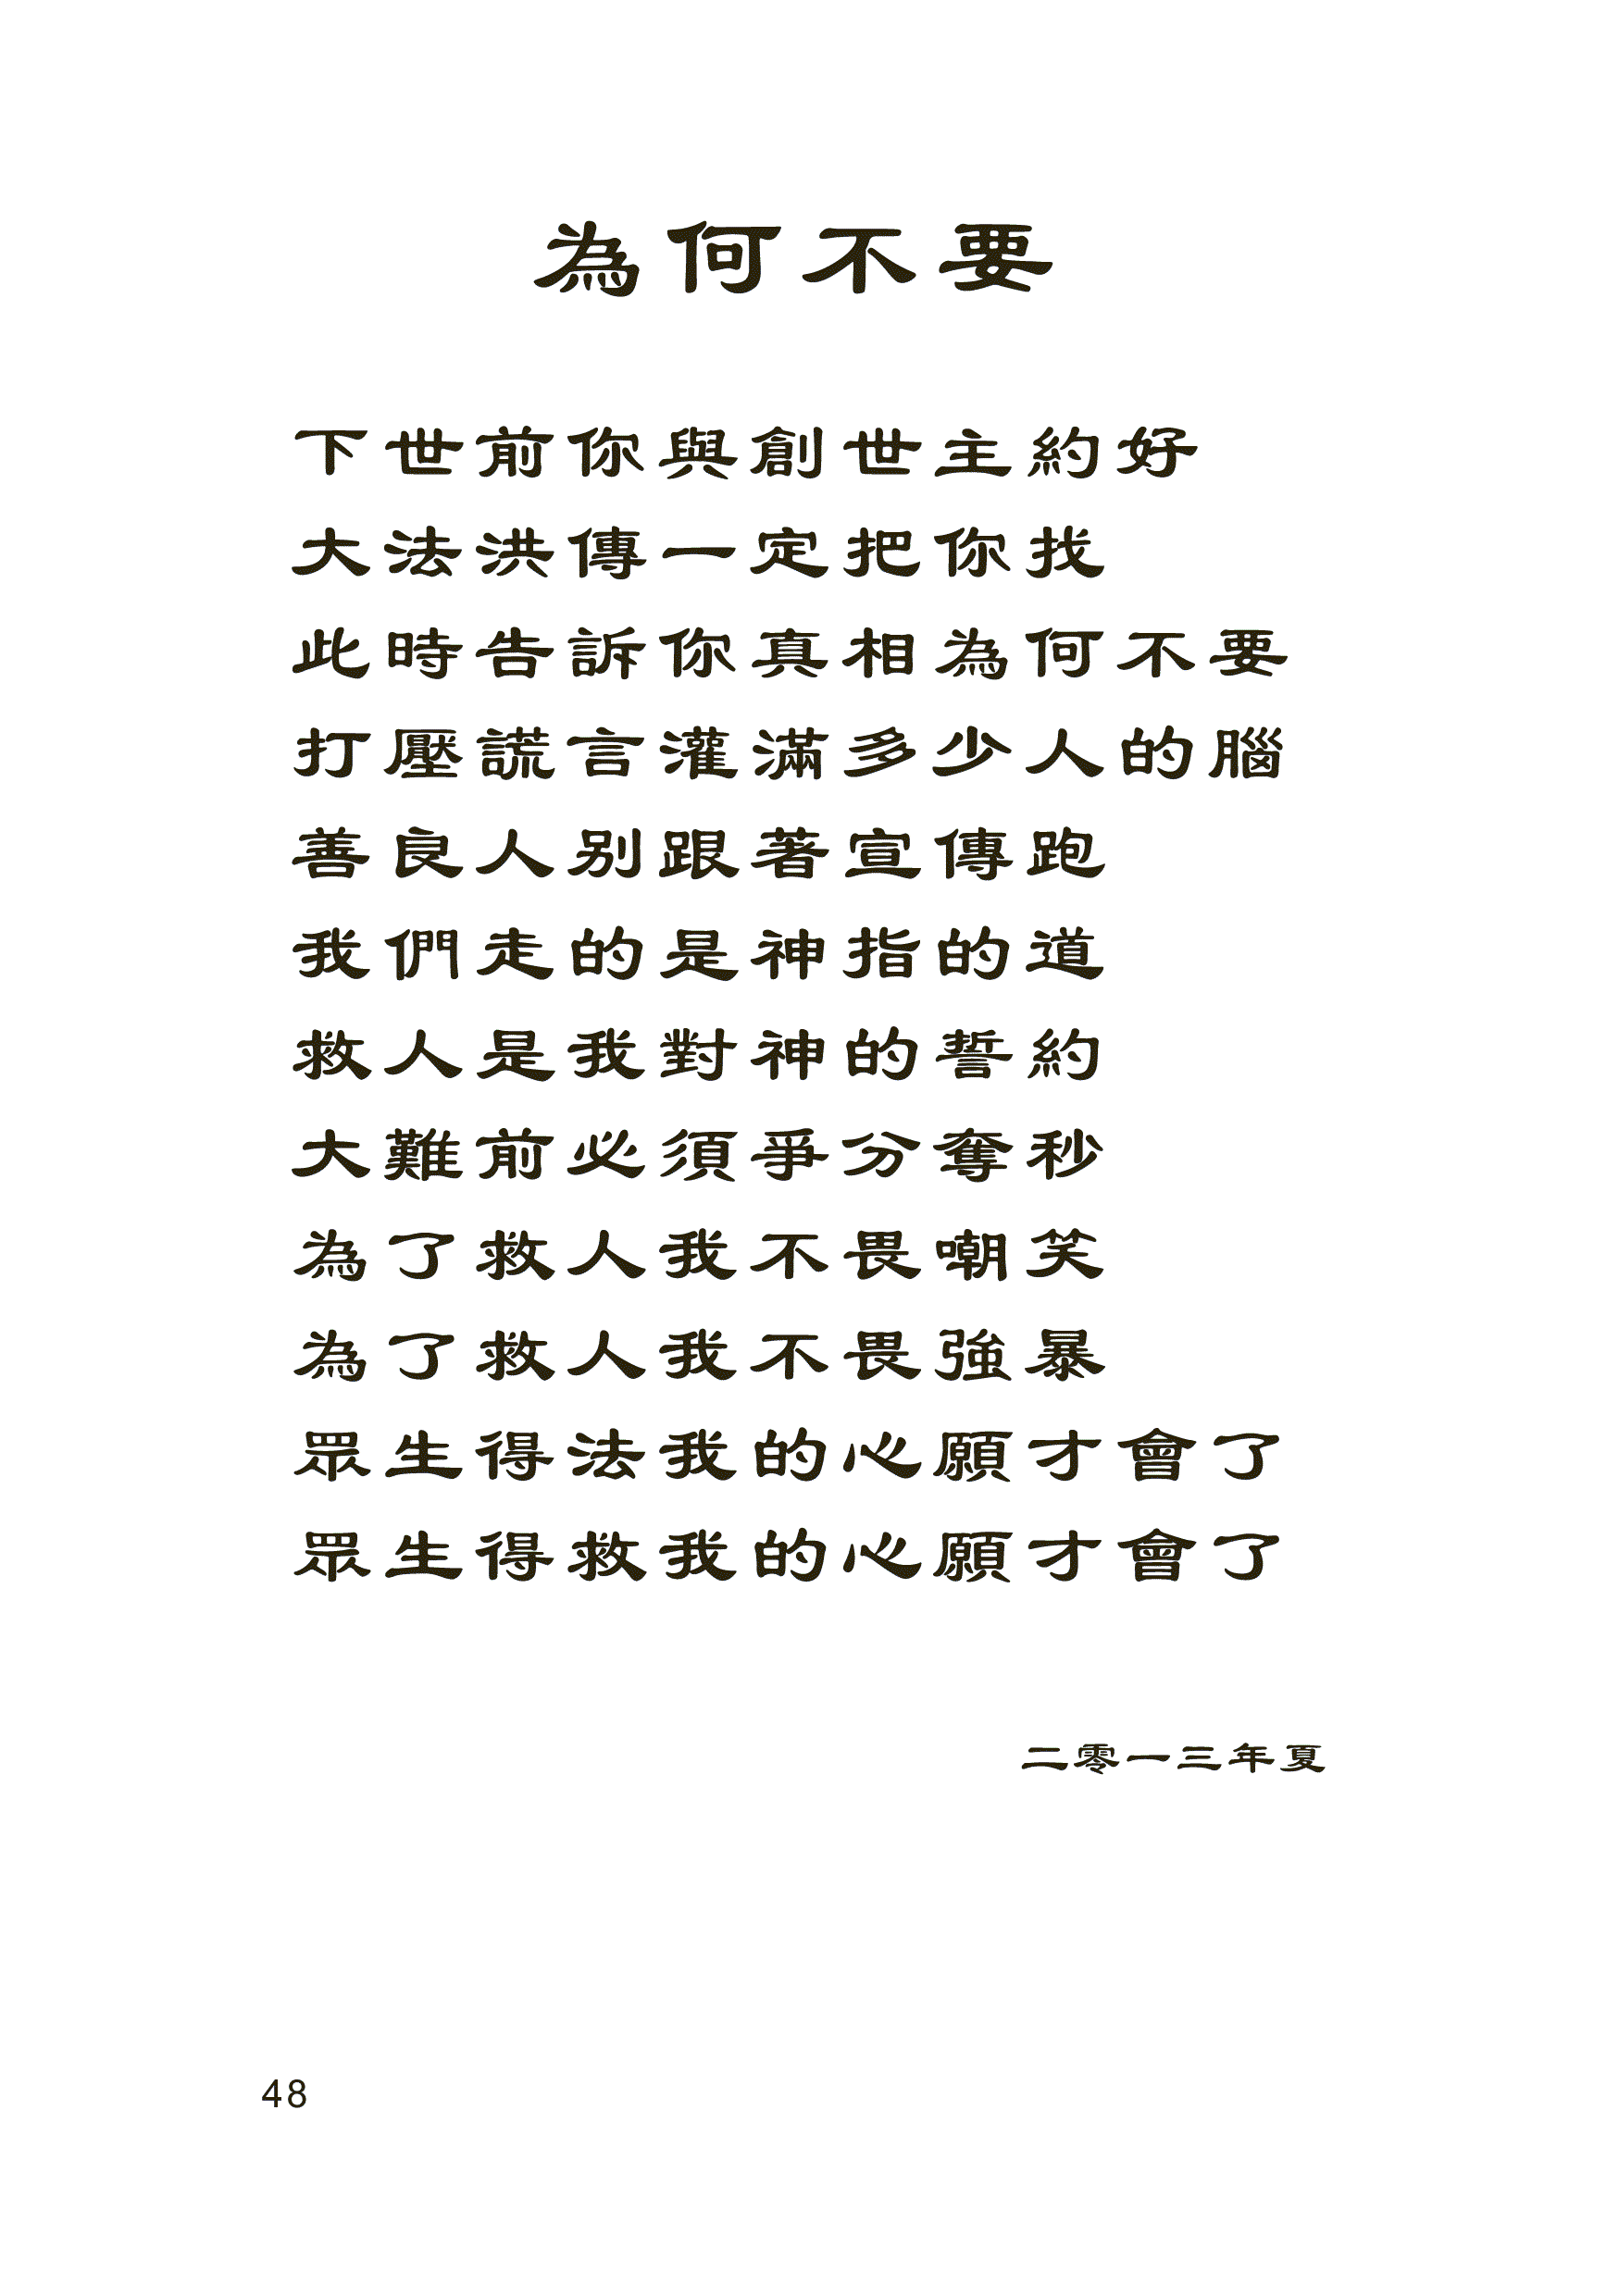 為何不要
下世前你與創世主約好
大法洪傳一定把你找
此時告訴你真相為何不要
打壓謊言灌滿多少人的腦
善良人別跟著宣傳跑
我們走的是神指的道
救人是我對神的誓約
大難前必須爭分奪秒
為了救人我不畏嘲笑
為了救人我不畏強暴
眾生得法我的心願才會了
眾生得救我的心願才會了
二零一三年夏
48